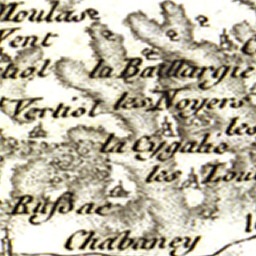 Moulas
Vent
la Baillargie
Vertiol les Noyers
les
la Cygalie
les Lou
Rußac
Chabaney